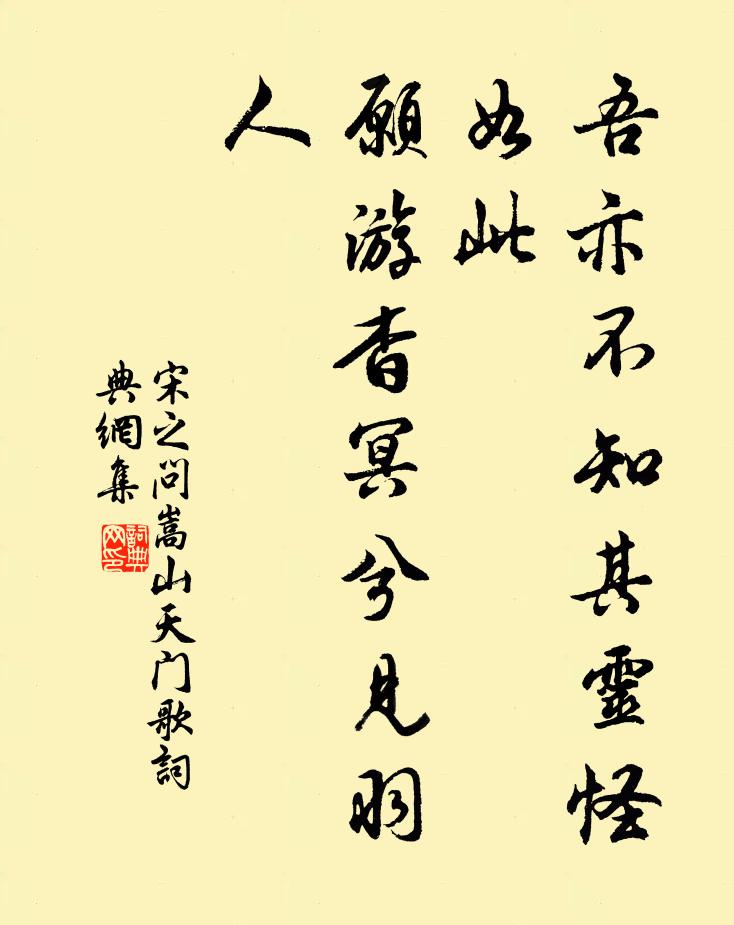 吾亦不知其靈怪
如此
願游杳冥兮見羽
人
宋之问嵩山天门歌詞
典網集
詞典网印